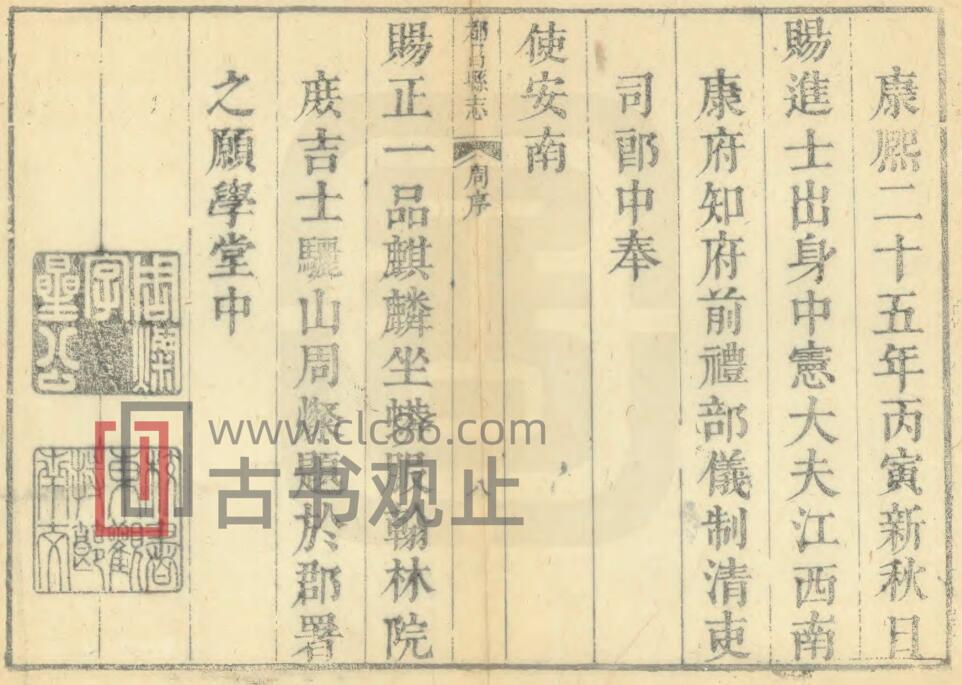 康熙二十五年丙寅新秋日
賜進士出身中憲大夫江西南
康府知府前禮部儀制清吏
司郎中奉
使安南
都昌縣志
周序
八
賜正一品麒麟坐蟒服翰林院
庶吉士驪山周燦題於郡署
之願學堂中
周燦
字
星公
www.clc86.com
古书观止